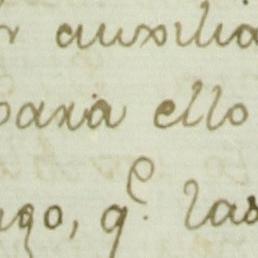 auxilia
para ello
ngo, q.^e las